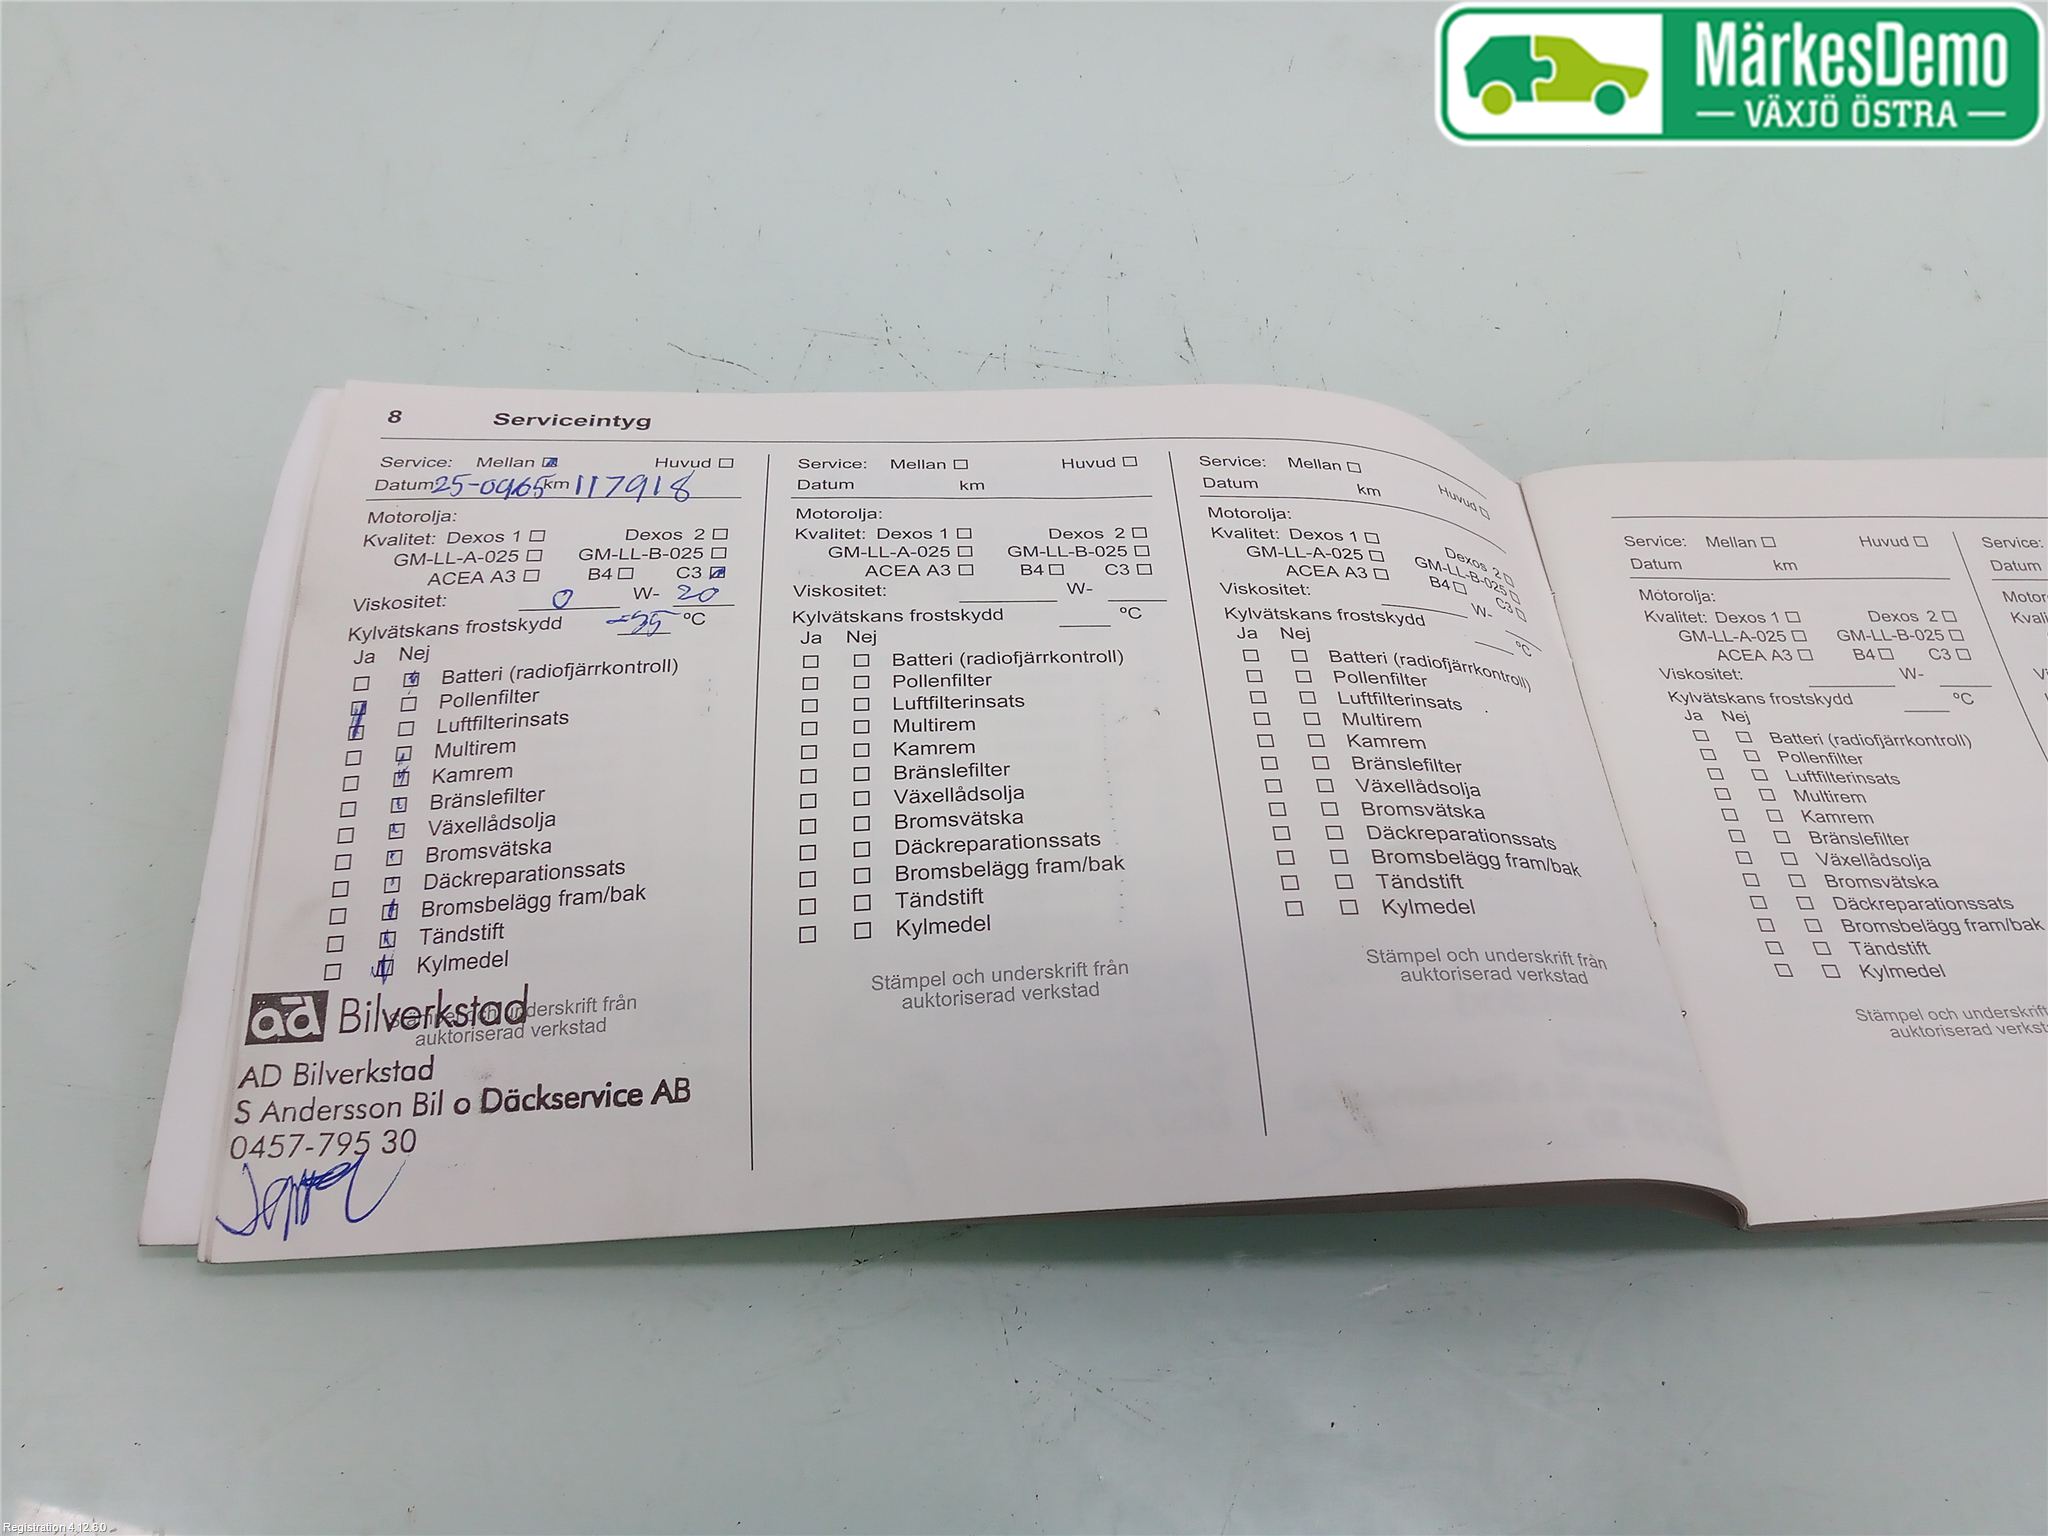 MärkesDemo
VÄXJÖ ÖSTRA
8 Serviceintyg
Service: Mellan Huvud
Datum km 117918
Motorolja:
Kvalitet: Dexos 1 Dexos 2
GM-LL-A-025 GM-LL-B-025
ACEA A3 B4 C3
Viskositet: 0 W- 20
Kylvätskans frostskydd °C
Ja Nej
Batteri (radiofjärrkontroll)
Pollenfilter
Luftfilterinsats
Multirem
Kamrem
Bränslefilter
Växellådsolja
Bromsvätska
Däckreparationssats
Bromsbelägg fram/bak
Tändstift
Kylmedel
ad Bilverkstad
Stämpel och underskrift från
auktoriserad verkstad
AD Bilverkstad
S Andersson Bil o Däckservice AB
0457-795 30
Service: Mellan Huvud
Datum km
Motorolja:
Kvalitet: Dexos 1 Dexos 2
GM-LL-A-025 GM-LL-B-025
ACEA A3 B4 C3
Viskositet: W-
Kylvätskans frostskydd °C
Ja Nej
Batteri (radiofjärrkontroll)
Pollenfilter
Luftfilterinsats
Multirem
Kamrem
Bränslefilter
Växellådsolja
Bromsvätska
Däckreparationssats
Bromsbelägg fram/bak
Tändstift
Kylmedel
Stämpel och underskrift från
auktoriserad verkstad
Service: Mellan Huvud
Datum km
Motorolja:
Kvalitet: Dexos 1 Dexos 2
GM-LL-A-025 GM-LL-B-025
ACEA A3 B4 C3
Viskositet: W-
Kylvätskans frostskydd °C
Ja Nej
Batteri (radiofjärrkontroll)
Pollenfilter
Luftfilterinsats
Multirem
Kamrem
Bränslefilter
Växellådsolja
Bromsvätska
Däckreparationssats
Bromsbelägg fram/bak
Tändstift
Kylmedel
Stämpel och underskrift från
auktoriserad verkstad
Service: Mellan Huvud
Datum km
Motorolja:
Kvalitet: Dexos 1 Dexos 2
GM-LL-A-025 GM-LL-B-025
ACEA A3 B4 C3
Viskositet: W-
Kylvätskans frostskydd °C
Ja Nej
Batteri (radiofjärrkontroll)
Pollenfilter
Luftfilterinsats
Multirem
Kamrem
Bränslefilter
Växellådsolja
Bromsvätska
Däckreparationssats
Bromsbelägg fram/bak
Tändstift
Kylmedel
Stämpel och underskrift
auktoriserad
Service:
Datum
Registration 4.12.6.0